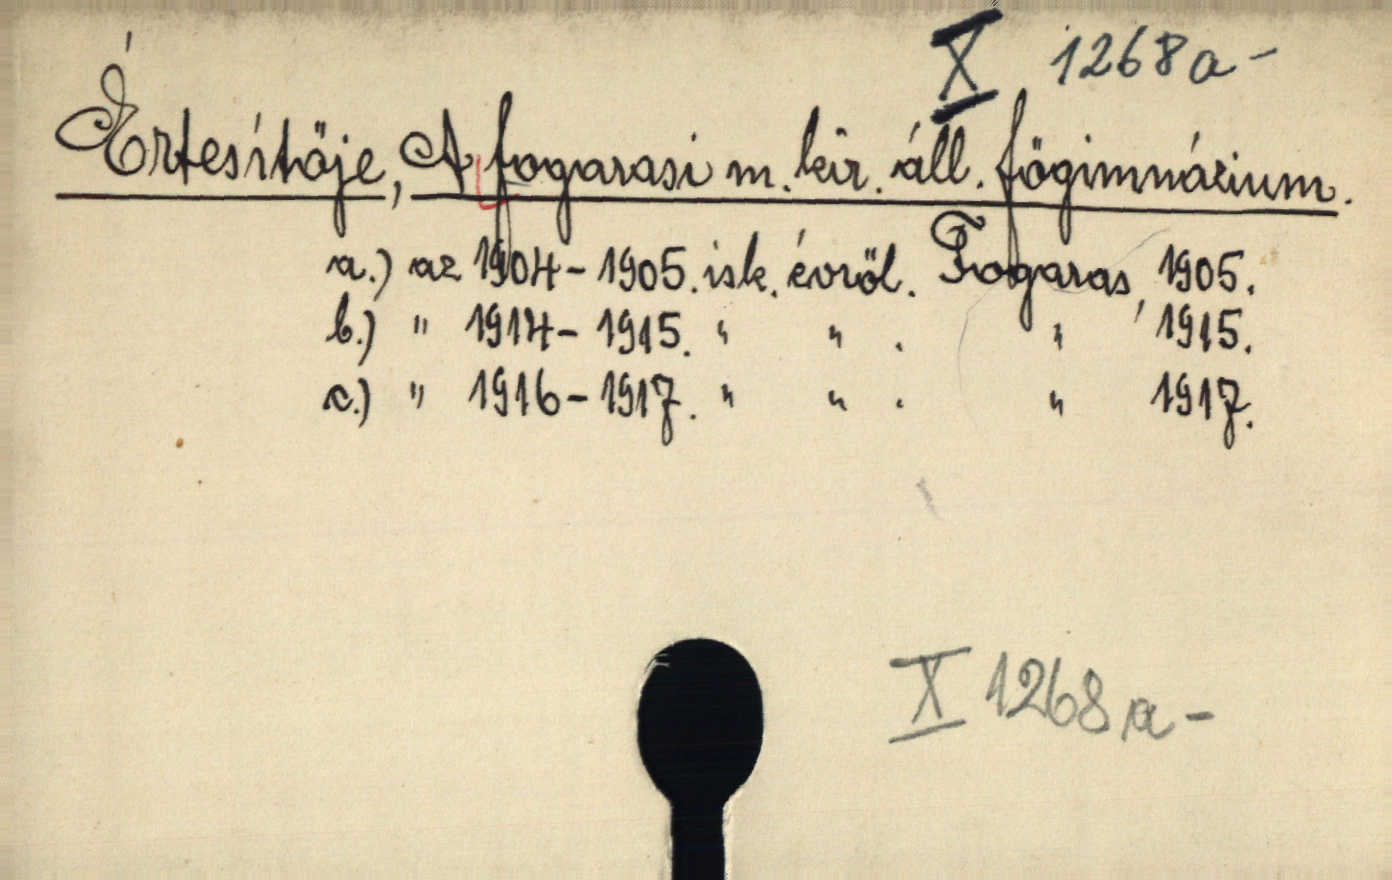 X 1268a-
Értesítője, A fogarasi m. kir. áll. főgimnázium.
a.) az 1904-1905. isk. évről. Fogaras, 1905.
b.) " 1914-1915. " " . " 1915.
c.) " 1916-1917. " " . " 1917.
X 1268a-